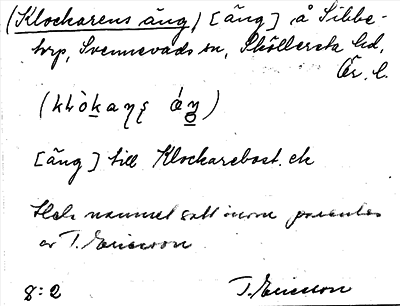 (Klockarens äng) [äng] å Sibbe-
torp, Svennevads sn, Sköllersta hd,
Ör. l.
[äng] till Klockarebost. ek
Hela namnet satt inom parentes
av T. Ericsson
8:2 T. Ericsson